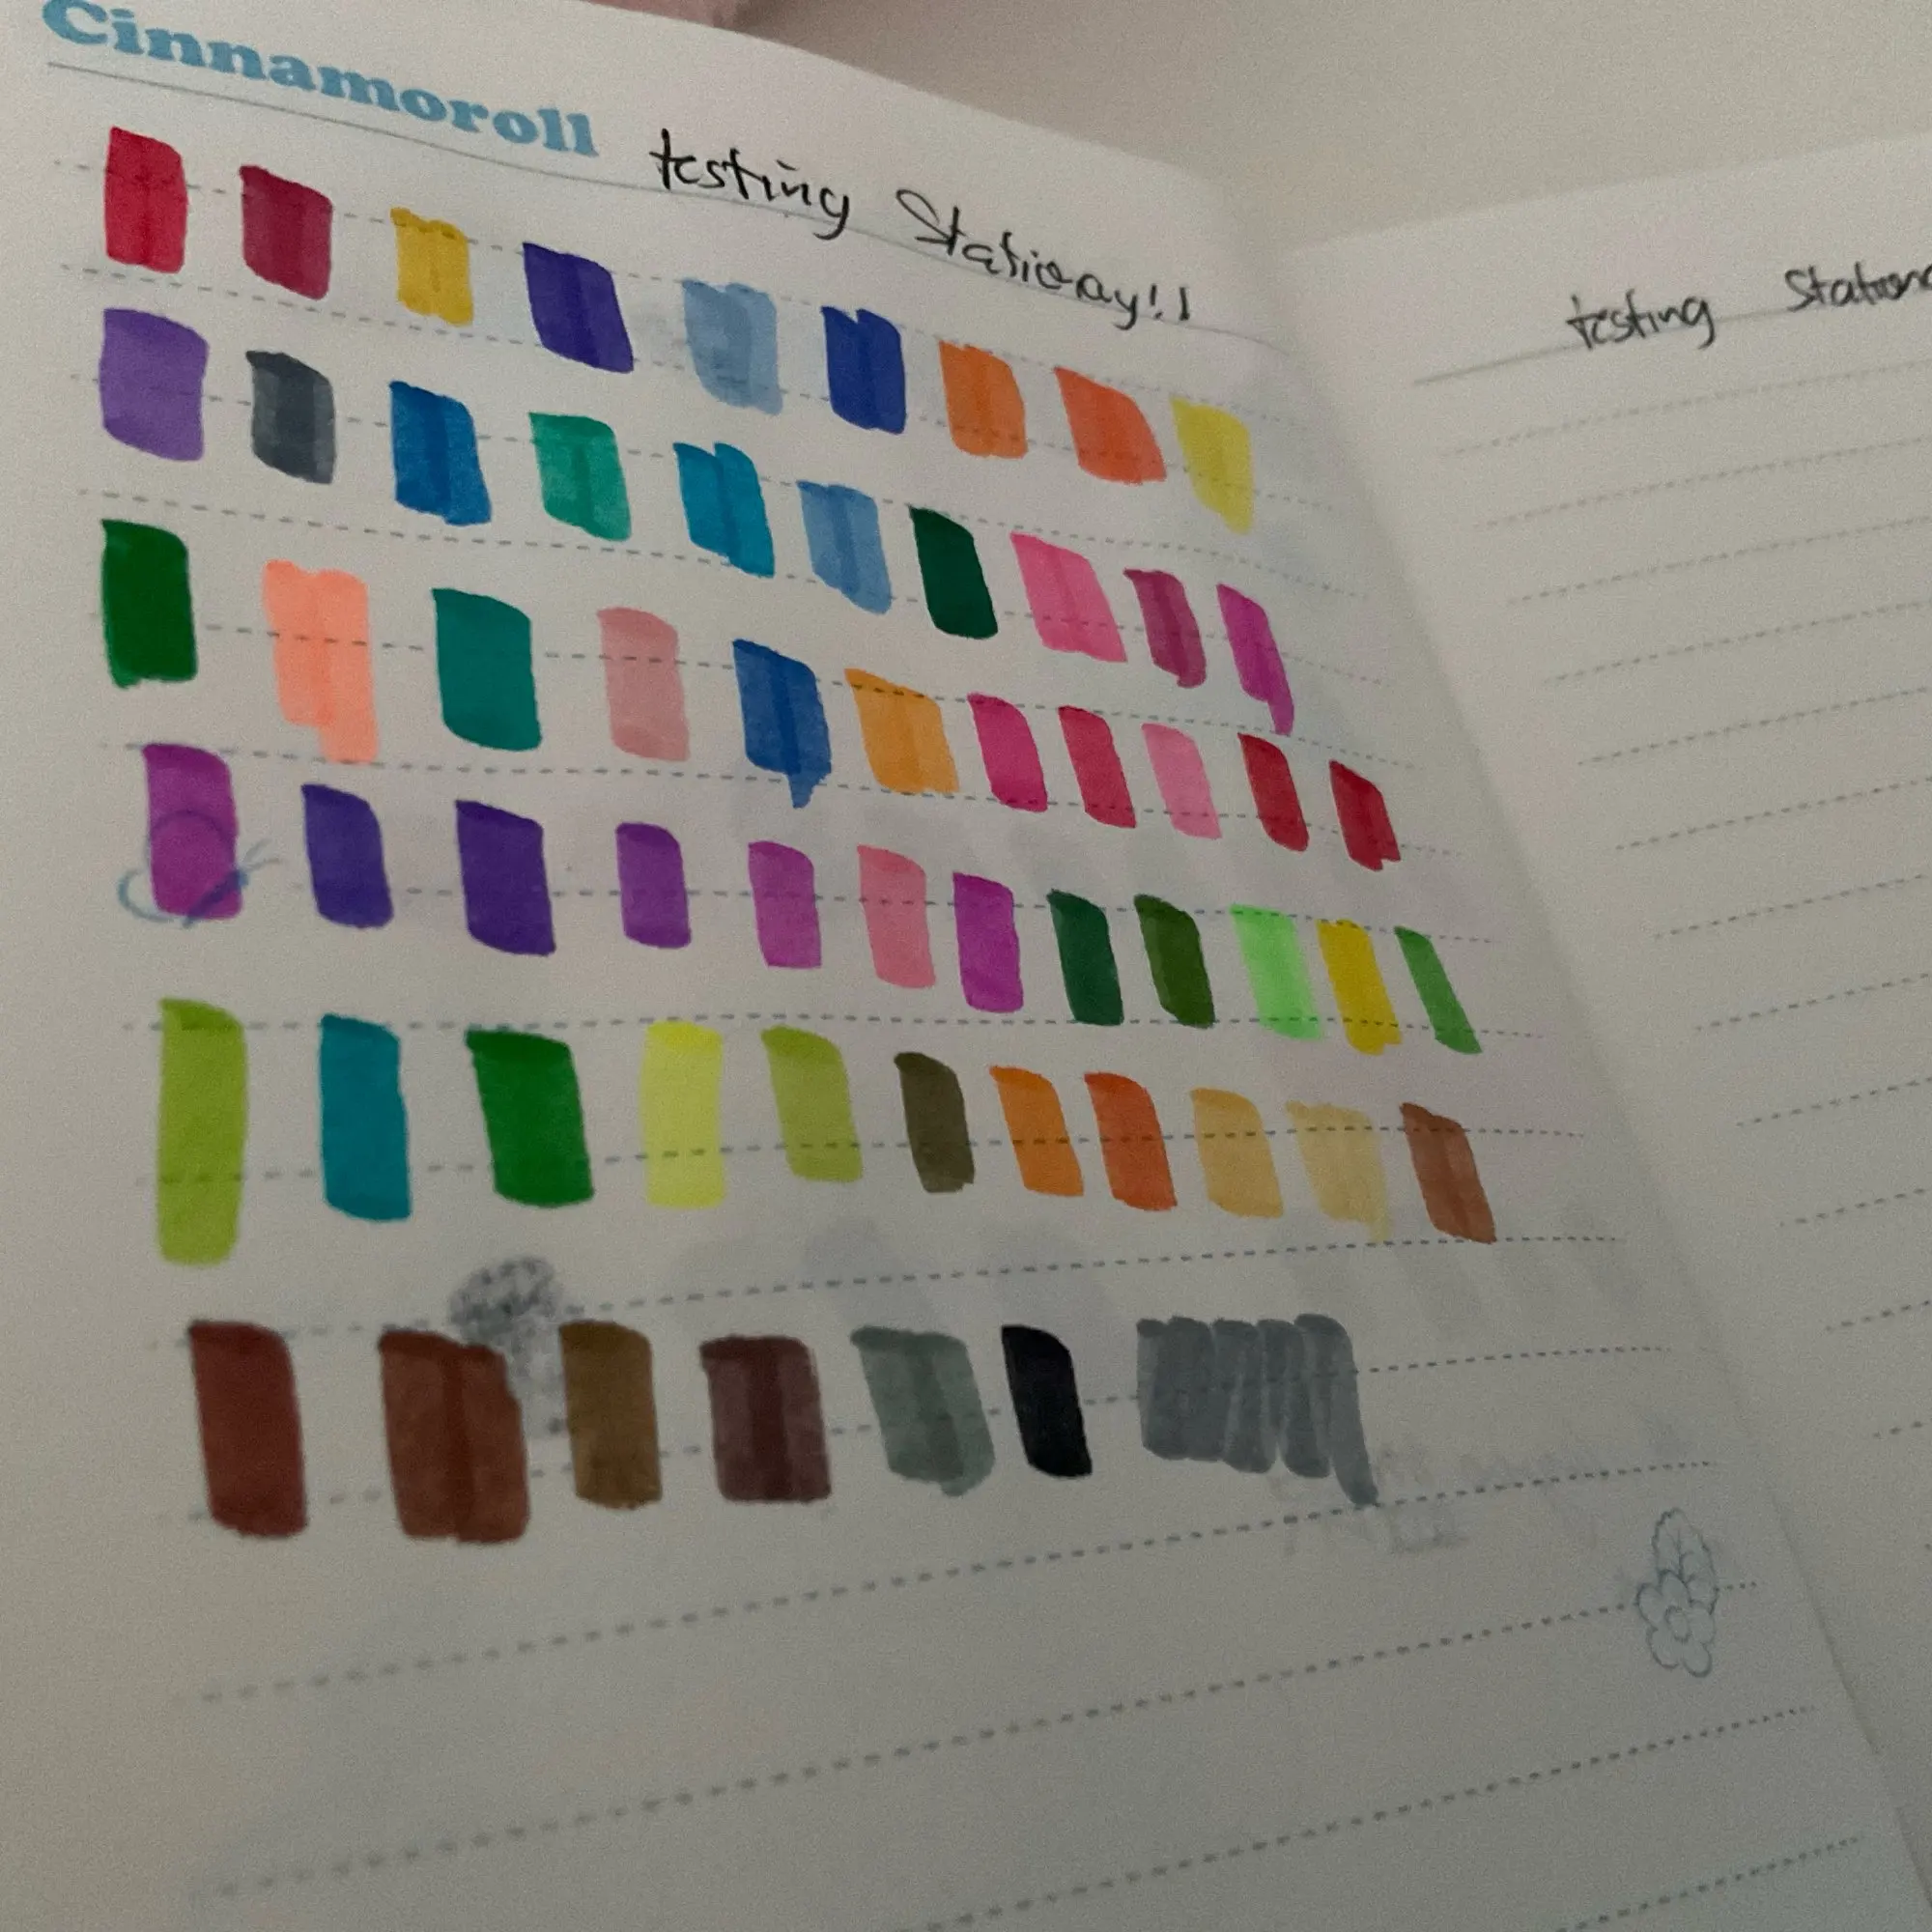 Cinnamoroll
testing Statioay!!
testing Station